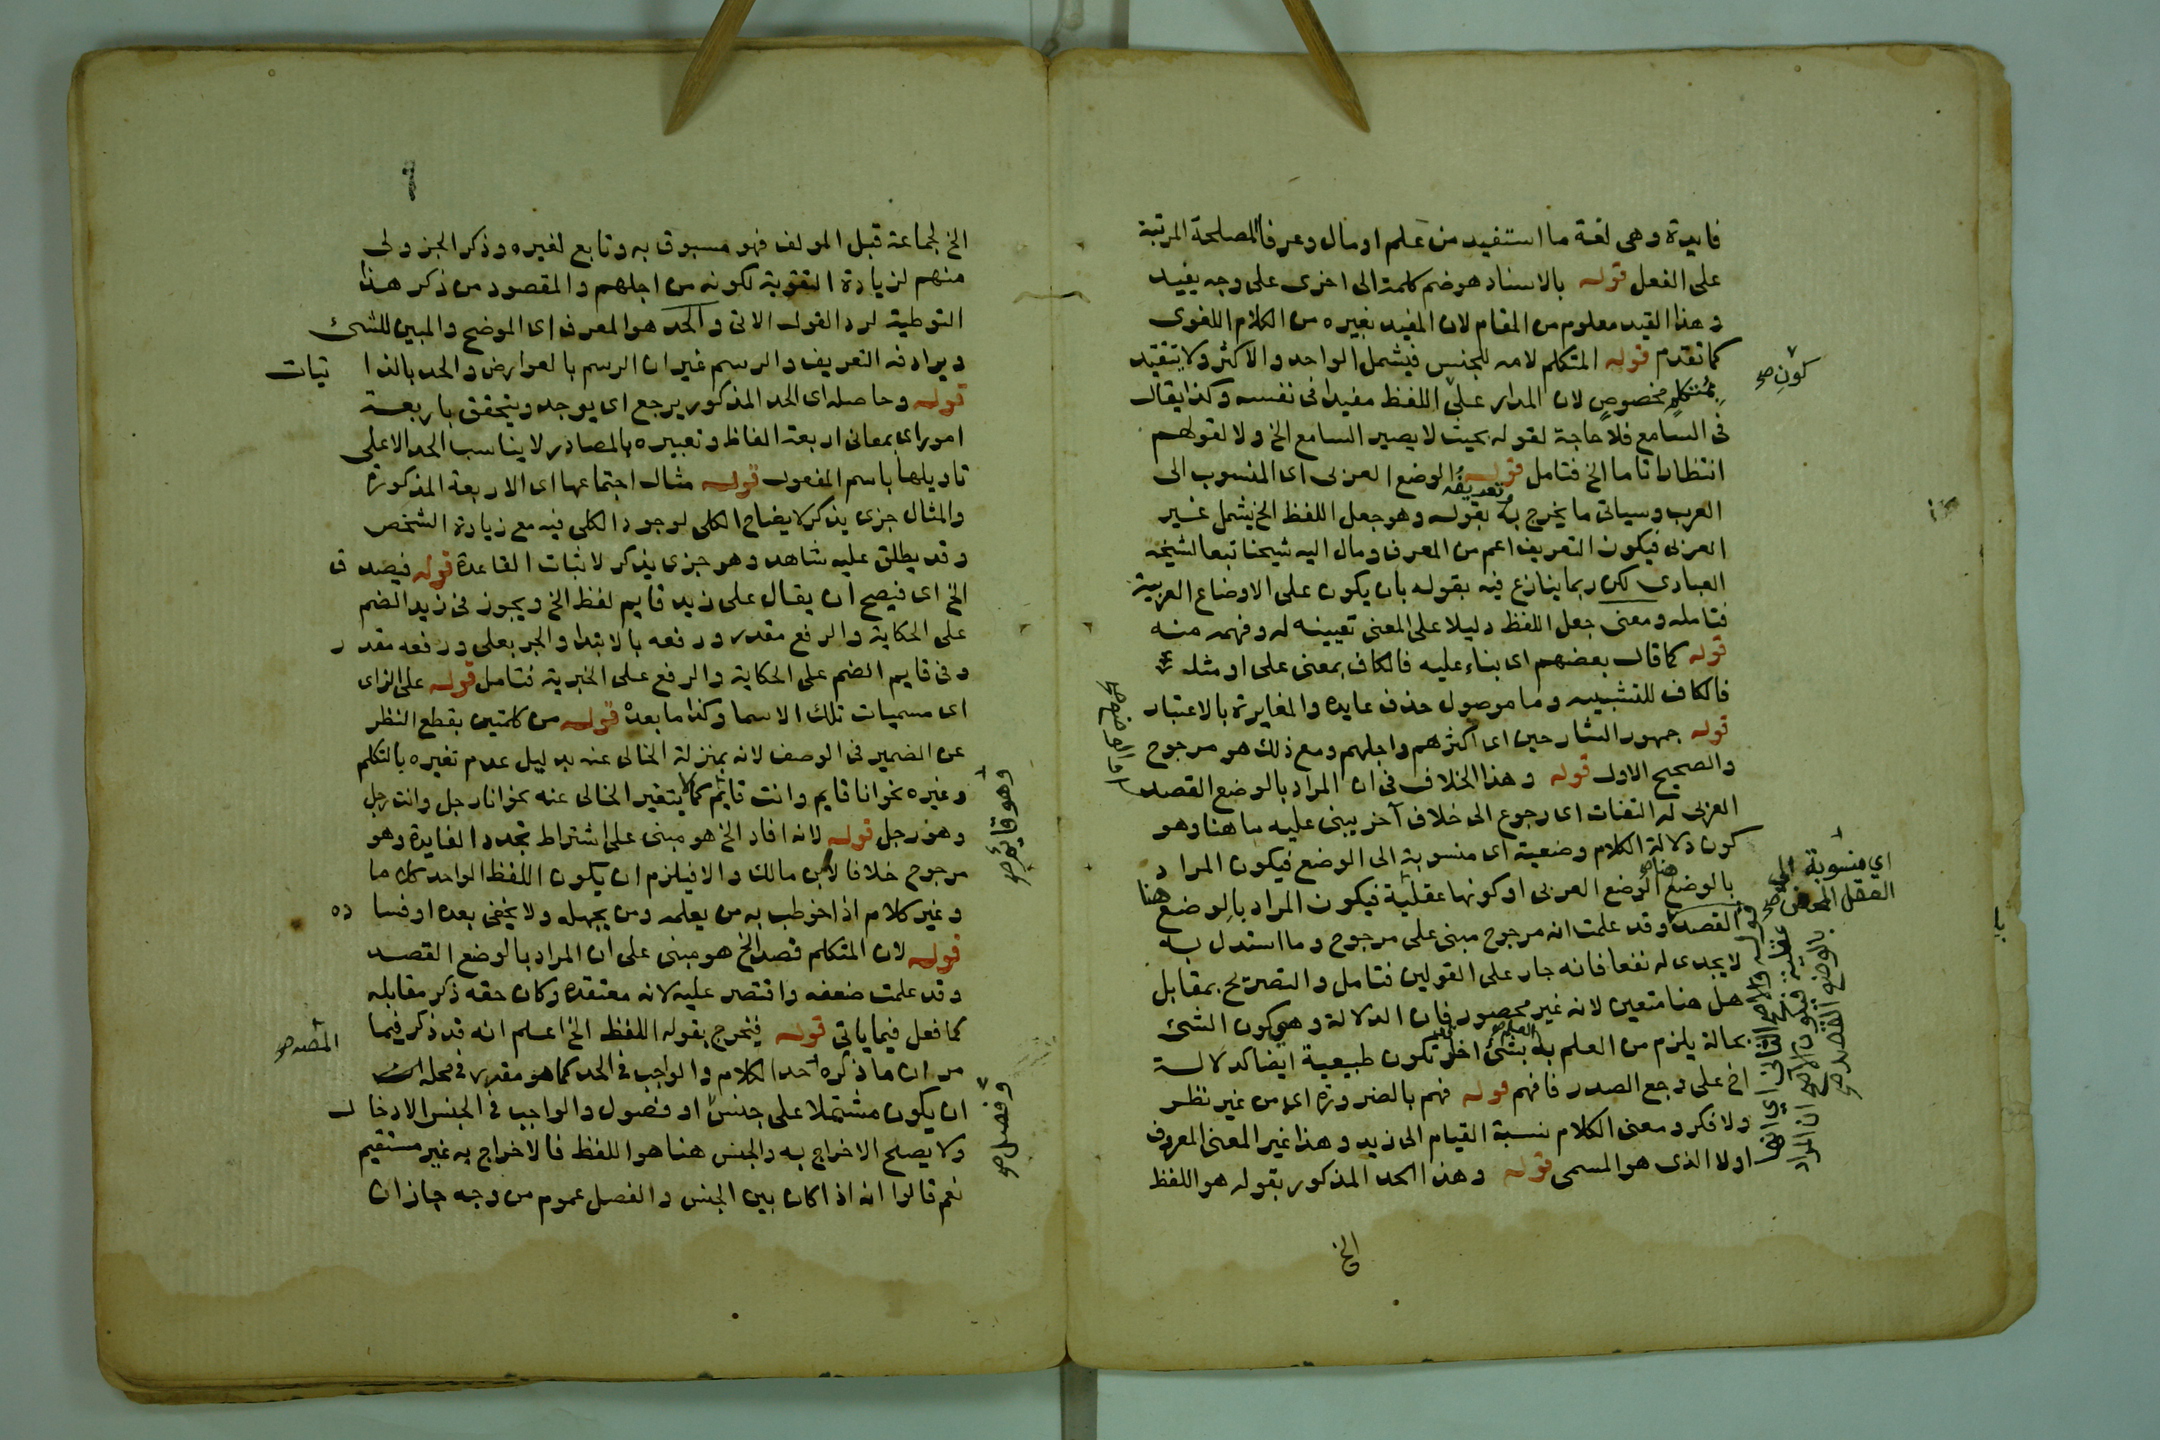 فايدة وهى لغة ما استفيد من علم او مال وعرفا المصلحة المرتبة
على الفعل قوله بالاسناد هو ضم كلمة الى اخرى على وجه يفيد
وهذا القيد معلوم من المقام لان المفيد نغيره من الكلام اللغوى
كما تقدم قوله المتكلم لامه للجنس فيشمل الواحد والاكثر ولا يتقيد
بمتكلم مخصوص لان المدار على اللفظ مفيدا فى نفسه وكذا يقال
كون صح
فى السامع فلا حاجة لقوله بحيث لا يصير السامع الخ ولا لقولهم
انتظارا تاما الخ فتامل قوله الوضع العربى اى المنسوب الى
العرب وسياتى ما يخرج به تعريفه بقوله وهو جعل اللفظ الخ يشمل غير
العربى فيكون التعريف اعم من المعرف ومال اليه شيخنا تبعا لشيخه
العبادى لكن ربما ينازع فيه بقوله بان يكون على الاوضاع العربية
فتامله ومعنى جعل اللفظ دليلا على المعنى تعيينه له وفهمه منه
قوله كما قال بعضهم اى بناء عليه فالكاف بمعنى على او مثله
فالكاف للتشبيه وما موصول حذف عايده والمغايرة بالاعتبار
قوله جمهور الشارحين اى اكثرهم واجلهم ومع ذلك هو مرجوح
والصحيح الاول قوله وهذا الخلاف فى ان المراد بالوضع القصد
او الوضع صح
العربى له التفات اى رجوع الى خلاف آخر يبنى عليه ما هنا وهو
كون دلالة الكلام وضعية اى منسوبة الى الوضع فيكون المراد
بالوضع هنا صح الوضع العربى او كونها عقلية فيكون المراد بالوضع هنا
اى منسوبة الى
العقل المحض صح
القصد وقد علمت انه مرجوح مبنى على مرجوح وما استدل به
لا يجدى له نفعا فانه جار على القولين فتامل والتصريح بمقابل
هل هنا متعين لانه غير محصور فان الدلالة وهى كون الشئ
بحالة يلزم من العلم به العلم صح بشئ اخر تكون طبيعية ايضا كدلالة
اخ على وجع الصدر فافهم قوله فهم بالضرورة اى من غير نظر
ولا فكر ومعنى الكلام نسبة القيام الى زيد وهذا غير المعنى المعروف
اولا الذى هو المسمى قوله وهذا الحد المذكور بقوله هو اللفظ
قوله والاصح الثانى اى انها
عقلية فيكون الاصح ان المراد
بالوضع القصد صح
الخ
٦
الخ لجماعة قبل المولف فهو مسبوق به وتابع لغيره وذكر الجزولى
منهم لزيادة التقوية لكونه من اجلهم والمقصود من ذكر هذا
التوطية لرد القول الاتى والحد هو المعرف اى الموضح والمبين للشئ
ويرادفه التعريف والرسم غير ان الرسم بالعوارض والحد بالذاتيات
قوله وحاصله اى الحد المذكور يرجع اى يوجد ويتحقق باربعة
امور اى بمعانى اربعة الفاظ وتعبيره بالمصادر لا يناسب الحد الا على
تاويلها باسم المفعول قوله مثال اجتماعها اى الاربعة المذكورة
والمثال جزى يذكر لايضاح الكلى لوجود الكلى فيه مع زيادة الشخص
وقد يطلق عليه شاهد وهو جزى يذكر لاثبات القاعدة قوله فيصدق
الخ اى فيصح ان يقال على زيد قايم لفظ الخ ويجوز فى زيد الضم
على الحكاية والرفع مقدر ورفعه بالابتدا والجر بعلى ورفعه مقدر
وفى قايم الضم على الحكاية والرفع على الخبرية فتامل قوله على الزاى
اى مسميات تلك الاسما وكذا ما بعده قوله من كلمتين بقطع النظر
عن الضمير فى الوصف لانه بمنزلة الخالى عنه بدليل عدم تغيره بالتكلم
وغيره نحو انا قايم وانت قايم كما لا يتغير الخالى عنه نحو انا رجل وانت رجل
وهو قايم صح
وهو رجل قوله لانه افاد الخ هو مبنى على اشتراط تجدد الفايدة وهو
مرجوح خلافا لابن مالك والا فيلزم ان يكون اللفظ الواحد كلاما
وغير كلام اذا خوطب به من يعلمه ومن يجهله ولا يخفى بعده او فساده
قوله لان المتكلم قصد الخ هو مبنى على ان المراد بالوضع القصد
وقد علمت ضعفه واقتصر عليه لانه معتقده وكان حقه ذكر مقابله
كما فعل فيما ياتى قوله فيخرج بقوله اللفظ الخ اعلم انه قد ذكر فيما
المصنف صح
مر ان ما ذكره حد الكلام والواجب فى الحد كما هو مقدر فى محله
ان يكون مشتملا على جنس او فصول والواجب فى الجنس الادخال
وفصل صح
ولا يصلح الاخراج به والجنس هنا هو اللفظ فالاخراج به غير مستقيم
نعم قالوا انه اذا كان بين الجنس والفصل عموم من وجه جاز ان